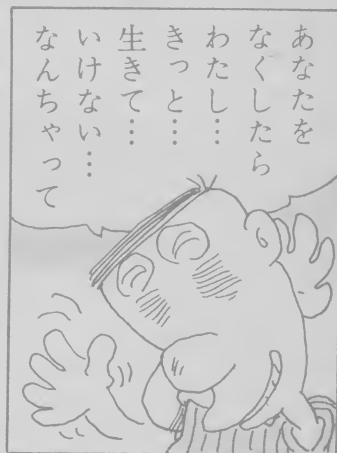 あなたを
なくしたら
わたし…
きっと…
生きて…
いけない…
なんちゃって